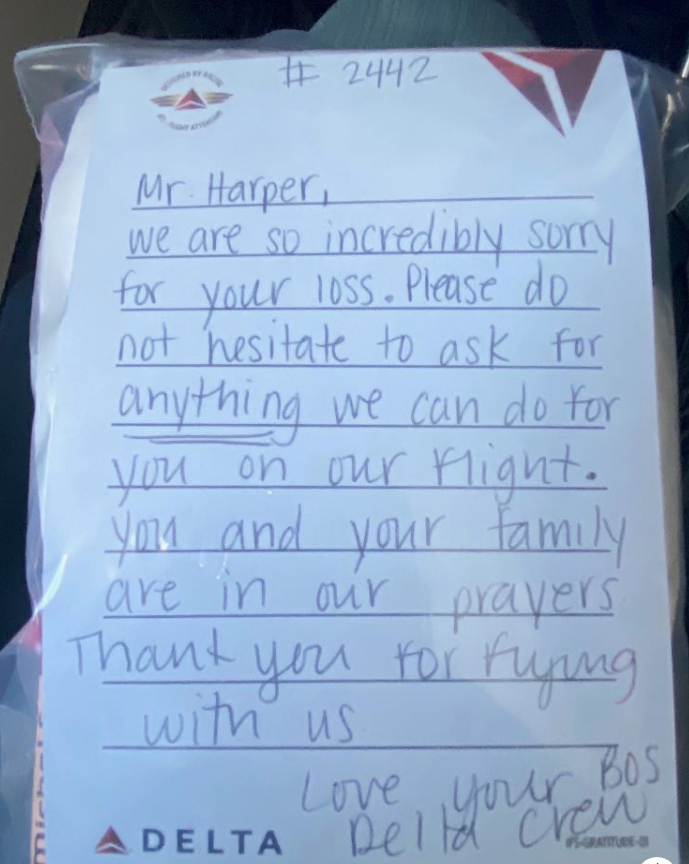 # 2442
Mr. Harper,
we are so incredibly sorry
for your loss. Please do
not hesitate to ask for
anything we can do for
you on our flight.
you and your family
are in our prayers
Thank you for flying
with us
Love your BOS
Delta Crew
DELTA